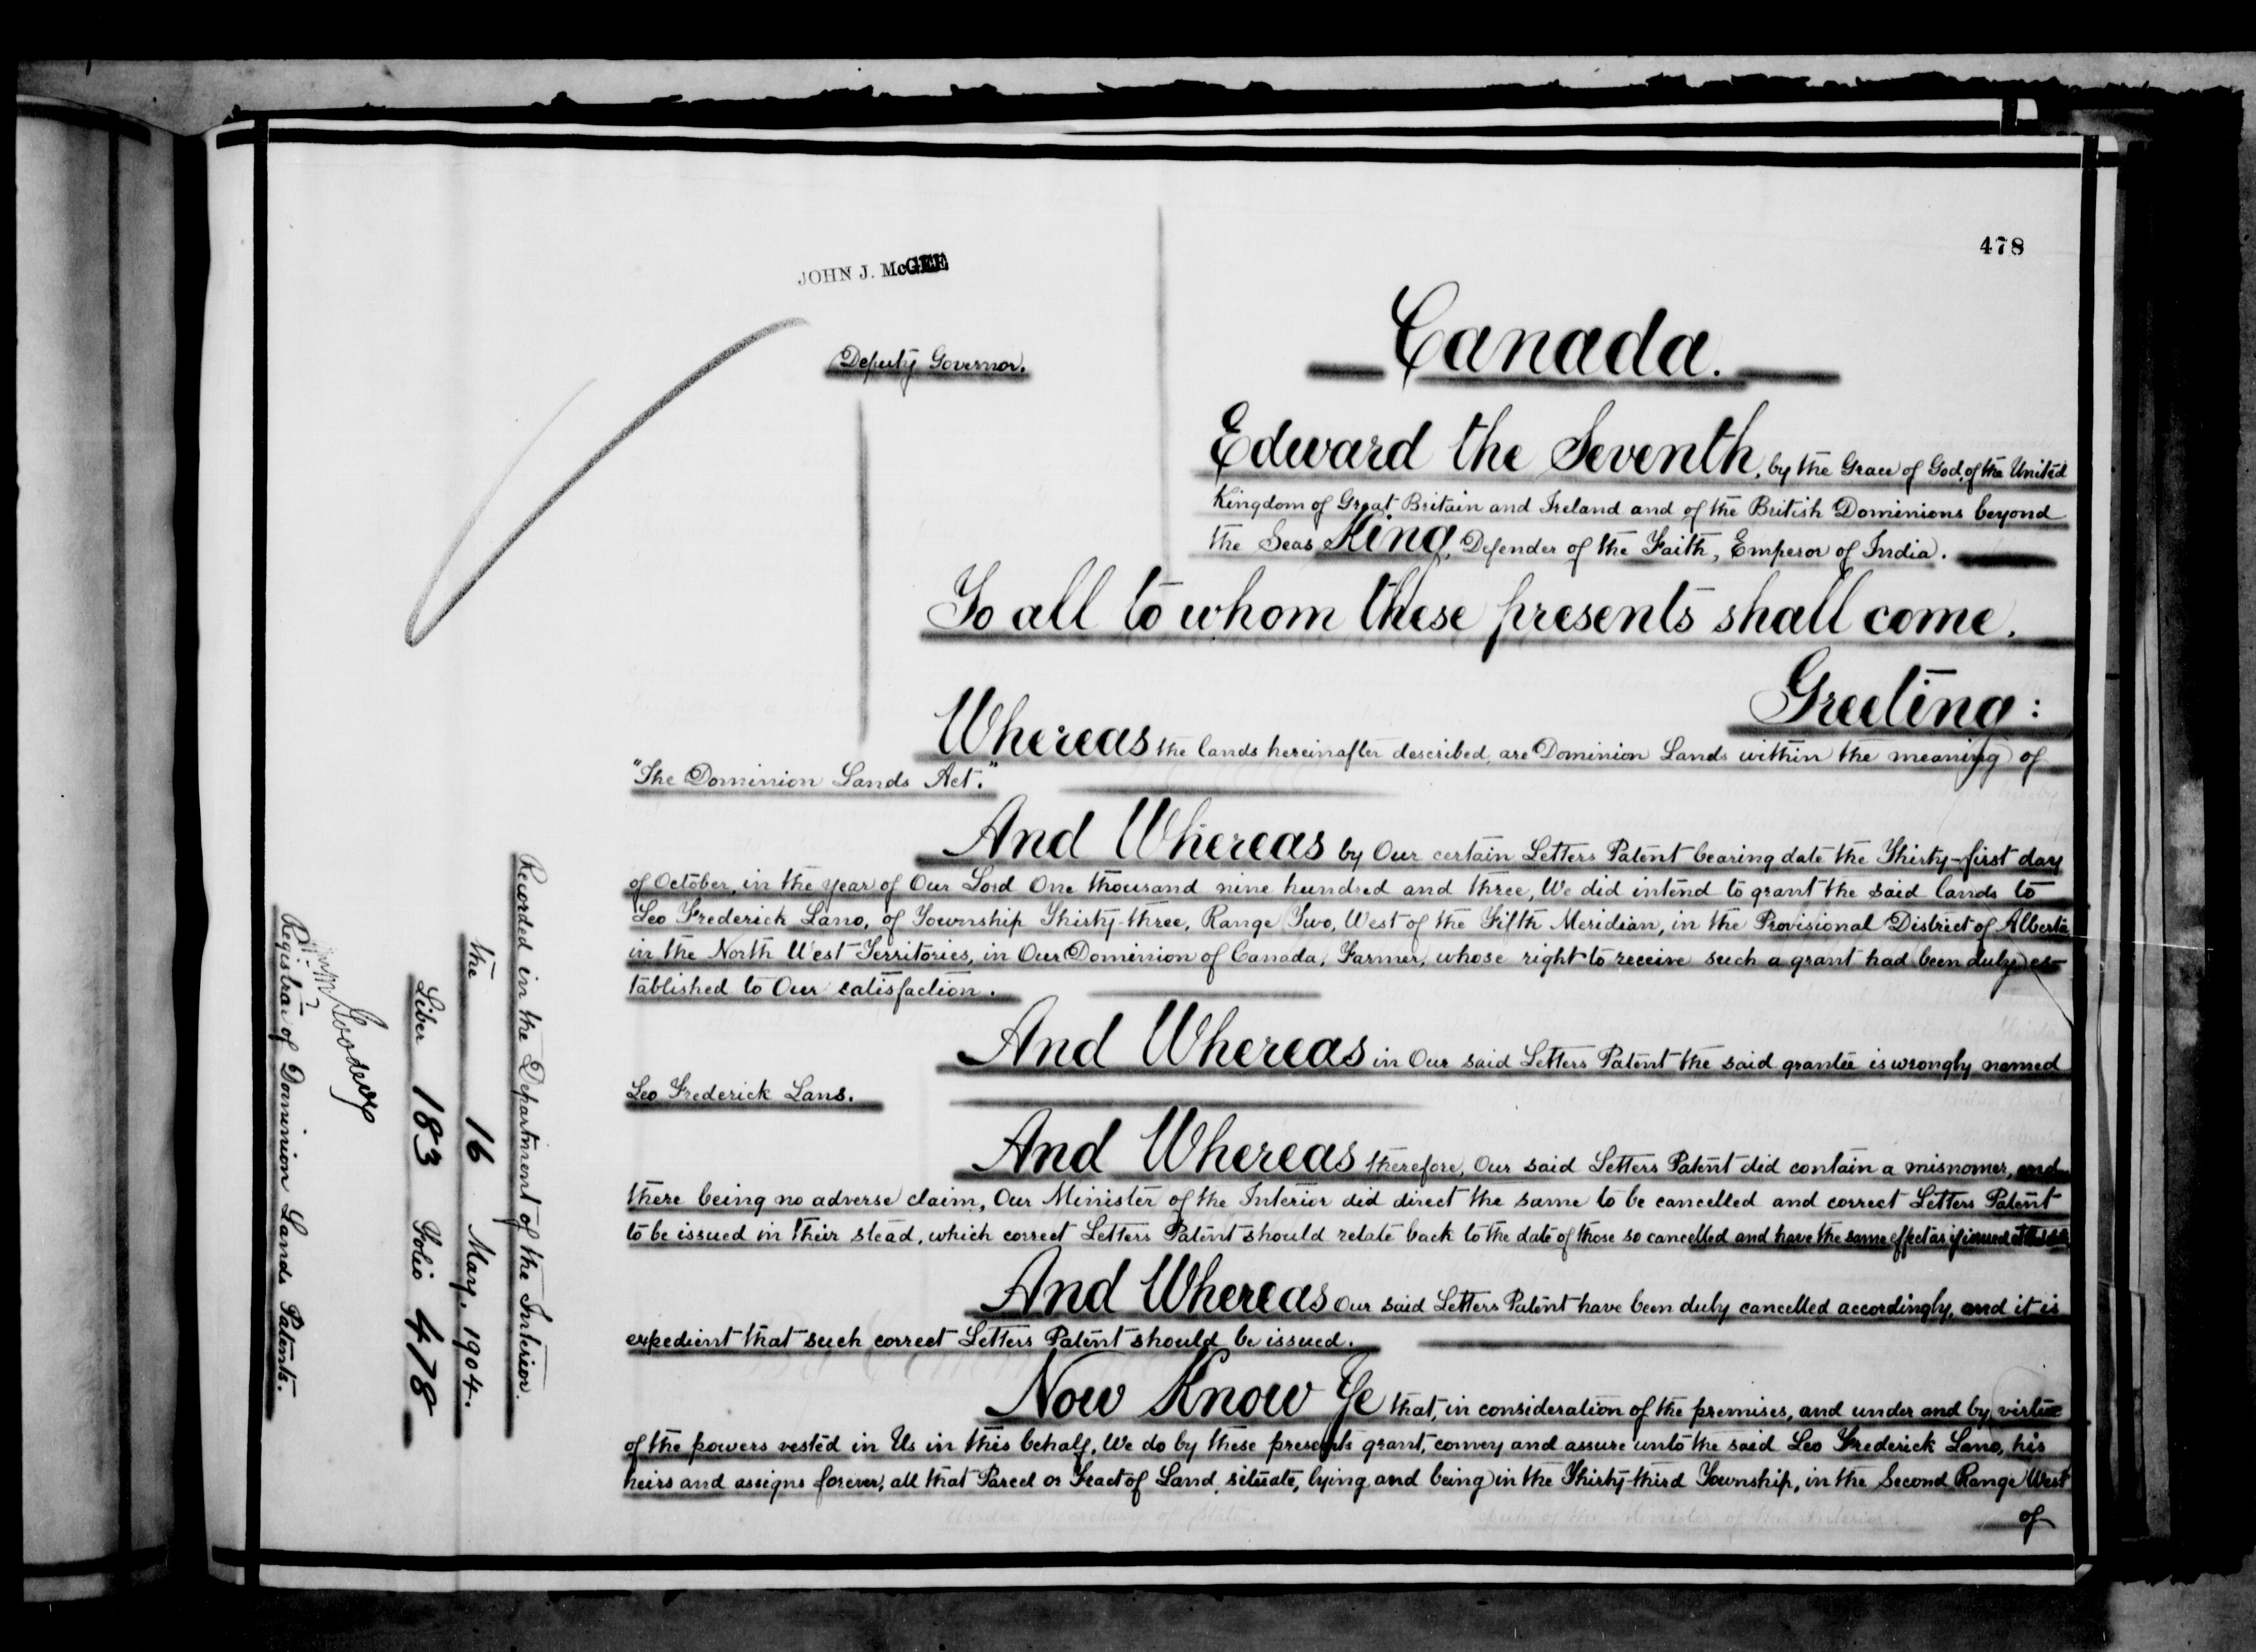 478
JOHN J. McGEE
Deputy Governor.
Canada.
Edward the Seventh, by the Grace of God, of the United
Kingdom of Great Britain and Ireland and of the British Dominions beyond
the Seas King, Defender of the Faith, Emperor of India.
To all to whom these presents shall come,
Greeting:
Whereas the lands hereinafter described, are Dominion Lands within the meaning of
"The Dominion Lands Act."
And Whereas by Our certain Letters Patent bearing date the Thirty-first day
of October, in the year of Our Lord One thousand nine hundred and three, We did intend to grant the said lands to
Leo Frederick Lano, of Township Thirty-three, Range Two, West of the Fifth Meridian, in the Provisional District of Alberta
in the North West Territories, in Our Dominion of Canada, Farmer, whose right to receive such a grant had been duly es-
tablished to Our satisfaction.
And Whereas in Our said Letters Patent the said grantee is wrongly named
Leo Frederick Lans.
And Whereas therefore, Our said Letters Patent did contain a misnomer, and
there being no adverse claim, Our Minister of the Interior did direct the same to be cancelled and correct Letters Patent
to be issued in their stead, which correct Letters Patent should relate back to the date of those so cancelled and have the same effect as if issued at
And Whereas Our said Letters Patent have been duly cancelled accordingly, and it is
expedient that such correct Letters Patent should be issued.
Now Know Ye that, in consideration of the premises, and under and by virtue
of the powers vested in Us in this behalf, We do by these presents grant, convey and assure unto the said Leo Frederick Lano, his
heirs and assigns forever, all that Parcel or Tract of Land, situate, lying and being in the Thirty-third Township, in the Second Range West
of
Recorded in the Department of the Interior.
the 16 May, 1904.
Liber 183 Folio 478
Registrar of Dominion Lands Patents.